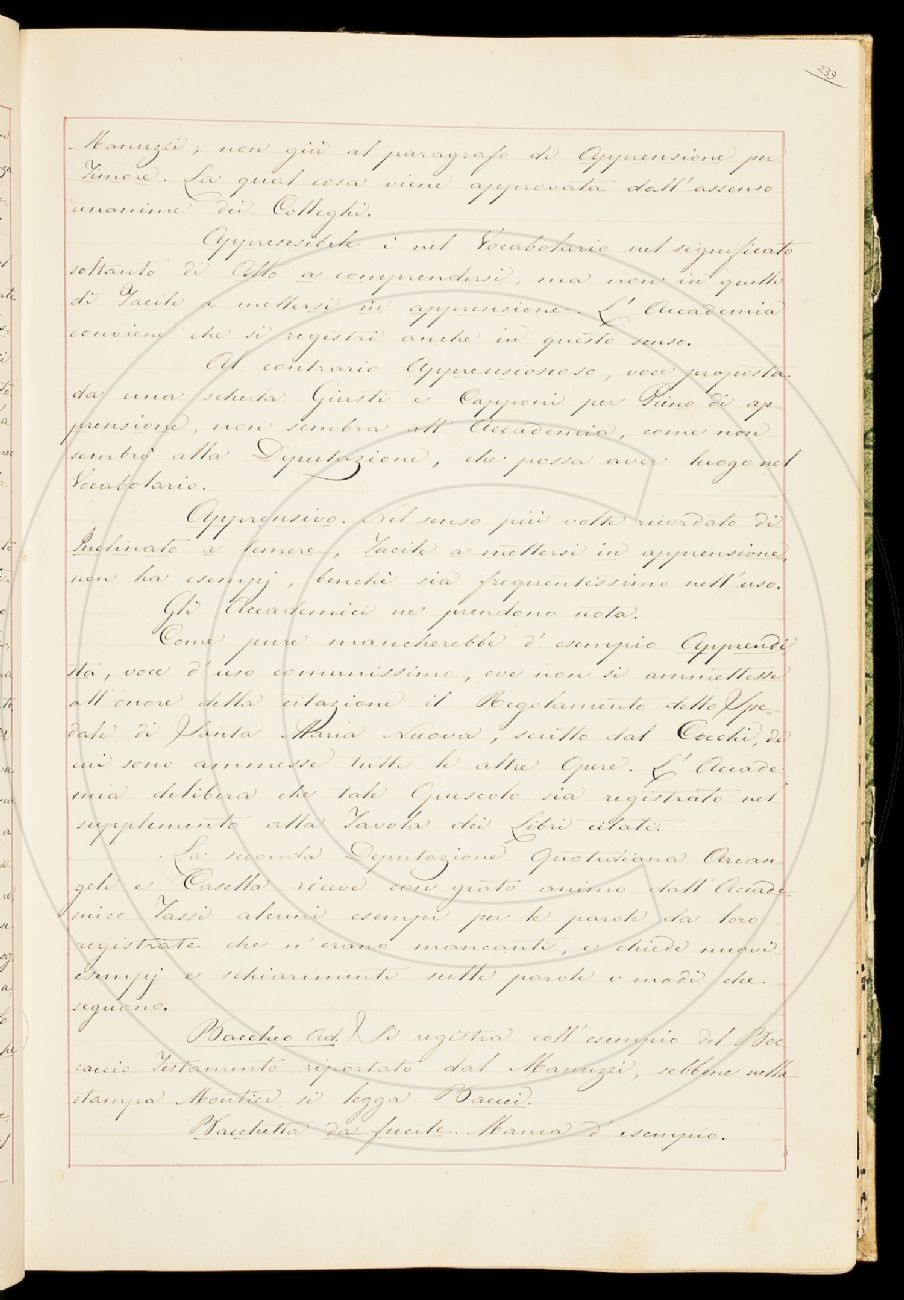 239
Manuzzi, non già al paragrafo di Apprensione per
Timore. La qual cosa viene approvata dall'assenso
unanime dei Colleghi.
Apprensibile è nel Vocabolario nel significato
soltanto di Atto a comprendersi, ma non in quello
di Facile a mettersi in apprensione. L'Accademia
conviene che si registri anche in questo senso.
Al contrario Apprensionoso, voce proposta
da una scheda Giusti e Capponi per Pieno di ap-
prensione, non sembra all'Accademia, come non
sembrò alla Deputazione, che possa aver luogo nel
Vocabolario.
Apprensivo. Nel senso più volte ricordato di
Inclinato a temere, Facile a mettersi in apprensione,
non ha esempj, benchè sia frequentissimo nell'uso.
Gli Accademici ne prendono nota.
Come pure mancherebbe d'esempio Apprendi
sta, voce d'uso comunissimo, ove non si ammettesse
all'onore della citazione il Regolamento dello Spe-
dale di Santa Maria Nuova, scritto dal Cocchi, di
cui sono ammesse tutte le altre Opere. L'Accade-
mia delibera che tale Opuscolo sia registrato nel
supplemento alla Tavola dei Libri citati.
La seconda Deputazione Quotidiana Arcan-
geli e Casella riceve con grato animo dall'Accade-
mico Tassi alcuni esempi per le parole da loro
registrate che n'erano mancanti, e chiede nuovi
esempj e schiarimenti sulle parole o modi che
seguono.
Baccheo Ad. Si registra coll'esempio del Boc
caccio Testamento riportato dal Manuzzi, sebbene nella
stampa Moutier si legga Bacci.
Bacchetta da fucile. Manca d'esempio.